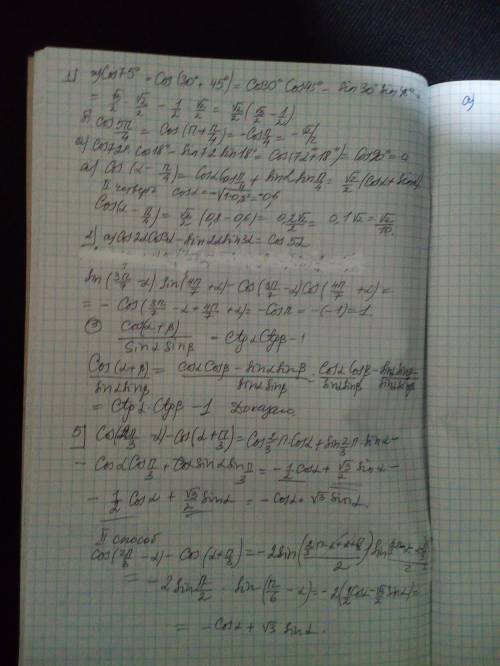 1) а) cos 75° = cos(30° + 45°) = cos30° cos45° − sin30° sin45° =
= √3/2 · √2/2 − 1/2 · √2/2 = √2/2 (√3/2 − 1/2)
б) cos 5π/4 = cos(π + π/4) = −cos π/4 = −√2/2
cos72° cos18° − sin72° sin18° = cos(72° + 18°) = cos90° = 0
cos(α − π/4) = cosα cos π/4 + sinα sin π/4 = √2/2 (cosα + sinα)
II четверть cosα = −√1−0,8² = −0,6
cos(α − π/4) = √2/2 (0,8 − 0,6) = 0,2√2/2 = 0,1√2 = √2/10.
2) а) cos2α cos3α − sin2α sin3α = cos5α
sin(3π/7 − α) · sin(4π/7 + α) − cos(3π/7 − α) cos(4π/7 + α) =
= − cos(3π/7 − α + 4π/7 + α) = −cosπ = −(−1) = 1.
③ cos(α + β)/sinα sinβ = ctgα ctgβ − 1
cos(α + β)/sinα sinβ = cosα cosβ − sinα sinβ/sinα sinβ = cosα cosβ/sinα sinβ − sinα sinβ/sinα sinβ =
= ctgα · ctgβ − 1 Доказано.
5] cos(2π/3 − α) − cos(α + π/3) = cos 2/3 π · cosα + sin 2/3 π · sinα −
− cosα cos π/3 + sinα sin π/3 = −1/2 cosα + √3/2 sinα −
− 1/2 cosα + √3/2 sinα = −cosα + √3 sinα
II способ
cos(2π/3 − α) − cos(α + π/3) = −2 sin
= −2 sin π/2 · sin(π/6 − α) = −2(1/2 cosα − √3/2 sinα) =
= −cosα + √3 sinα.
а)